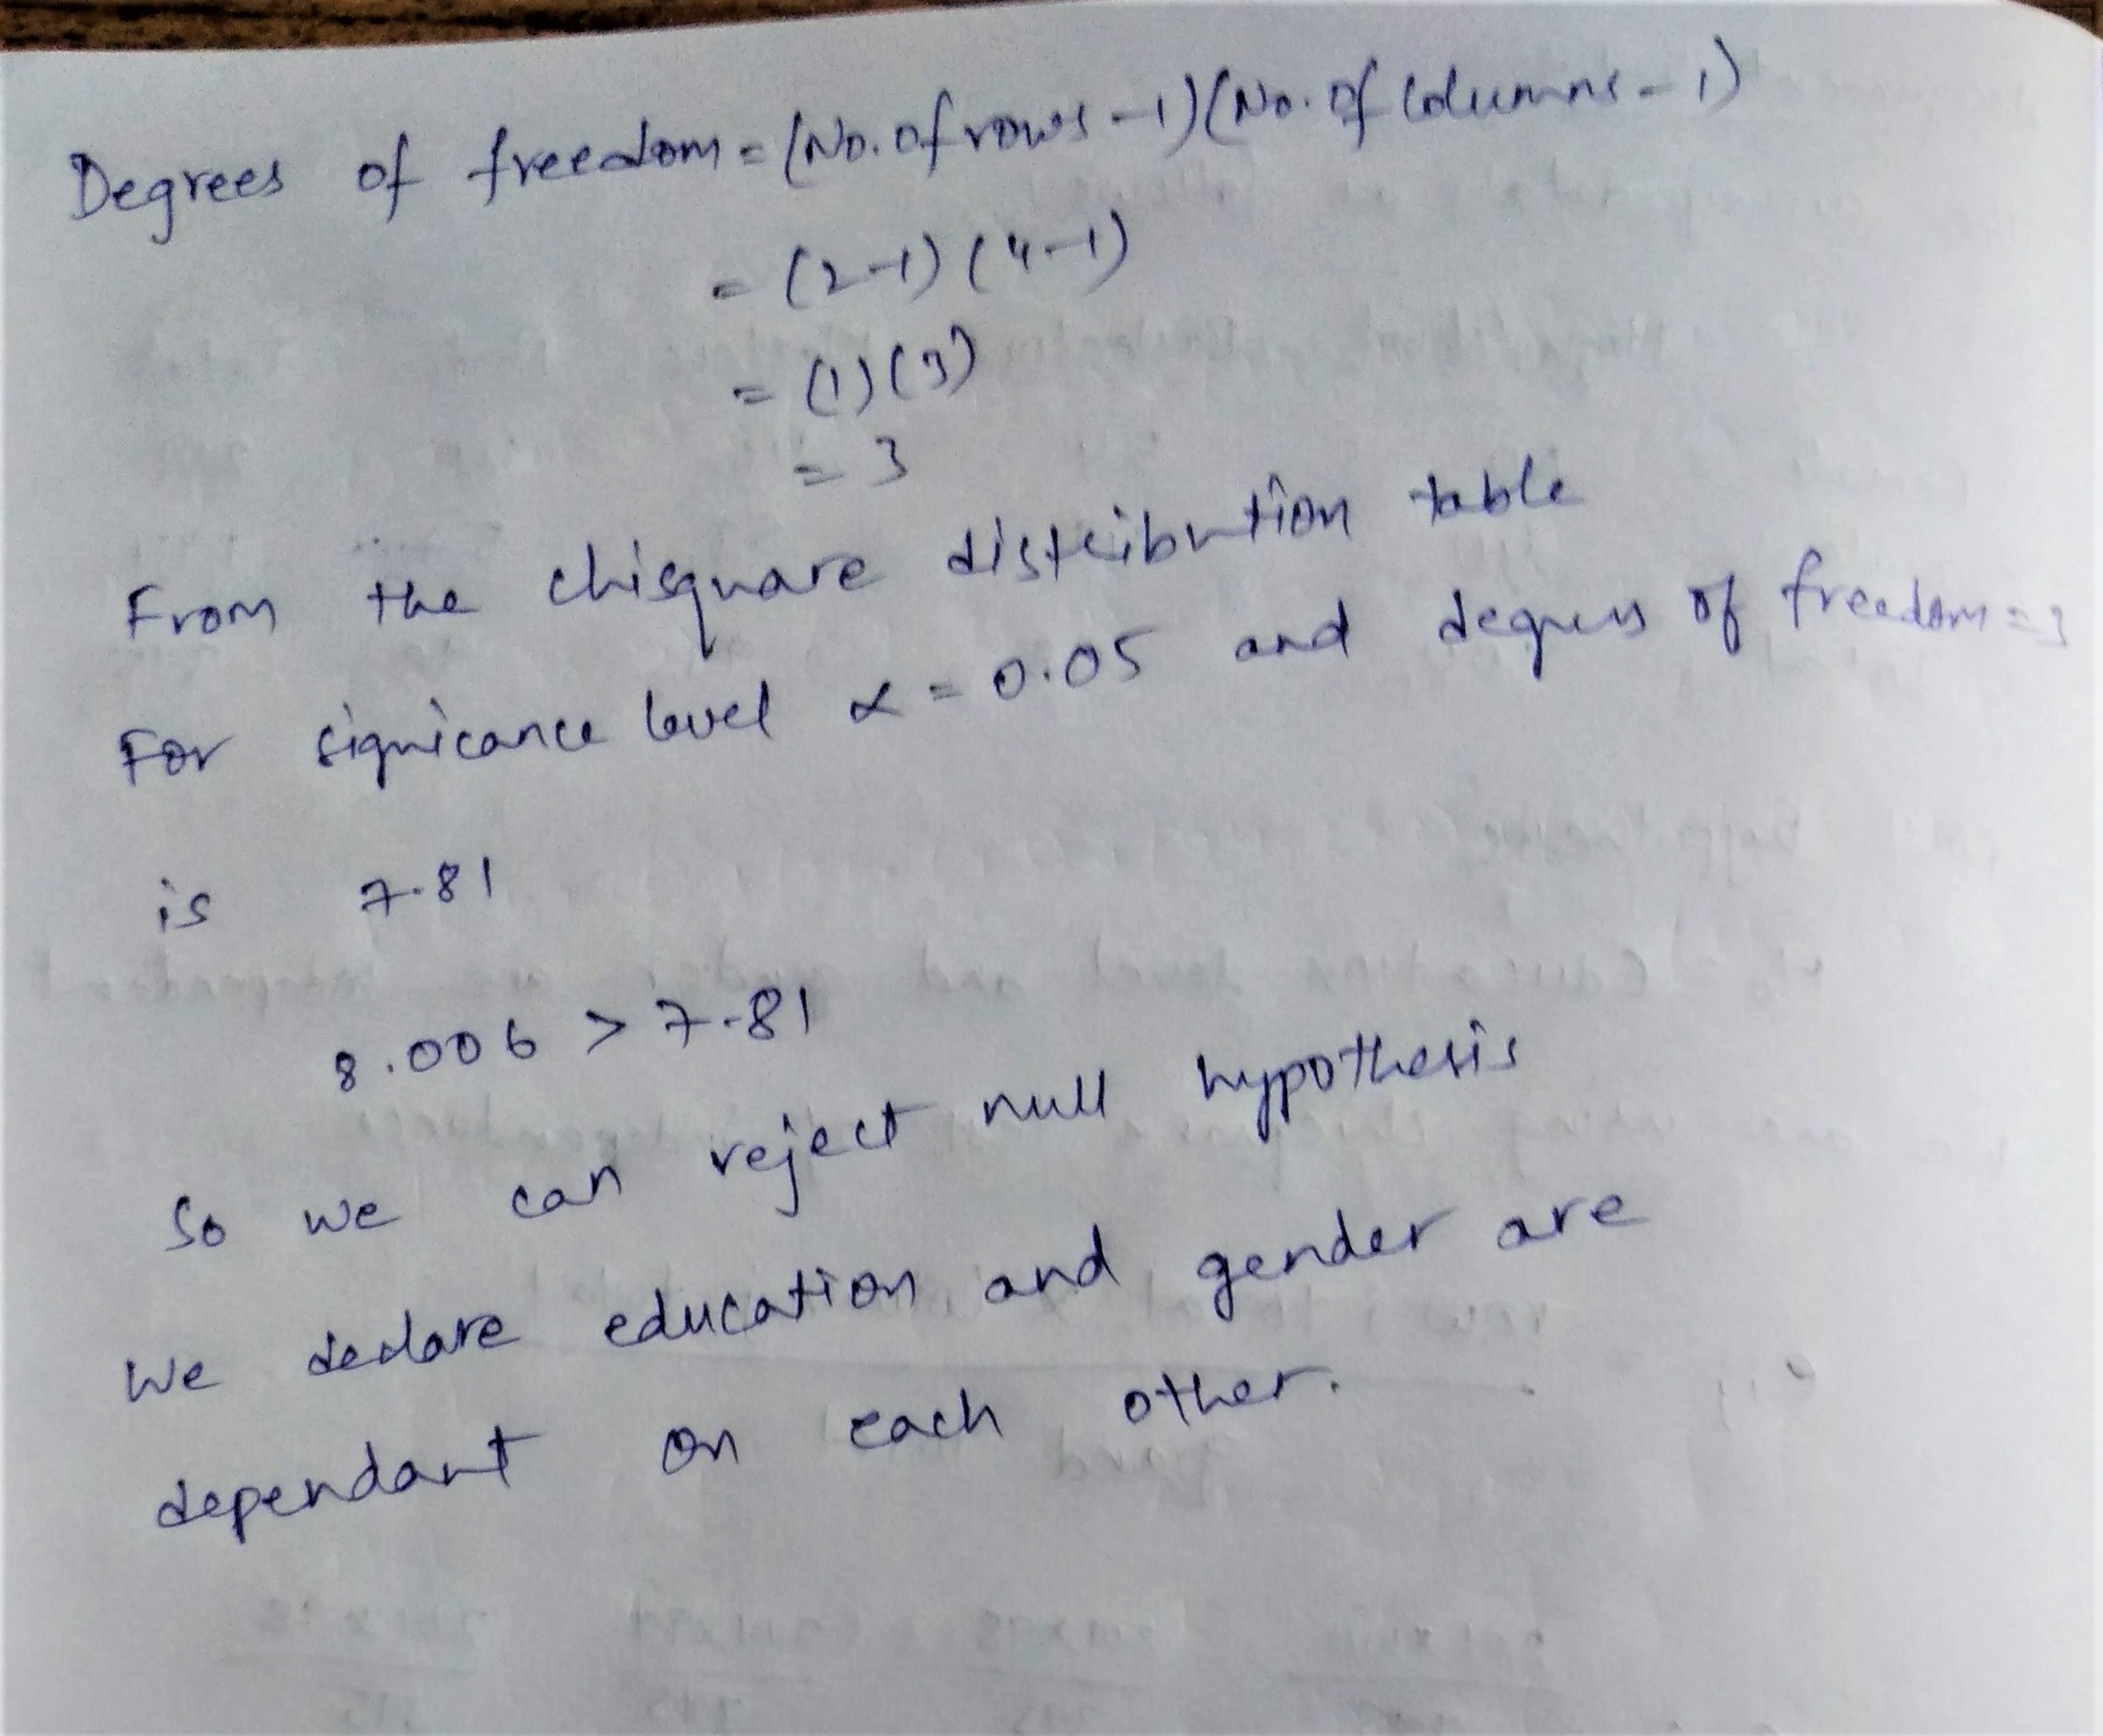 Degrees of freedom = (No. of rows - 1) (No. of columns - 1)
= (2-1) (4-1)
= (1) (3)
= 3
From the chisquare distribution table
For signicance level α = 0.05 and degrees of freedom = 3
is 7.81
8.006 > 7.81
So we can reject null hypothesis
We declare education and gender are
dependant on each other.